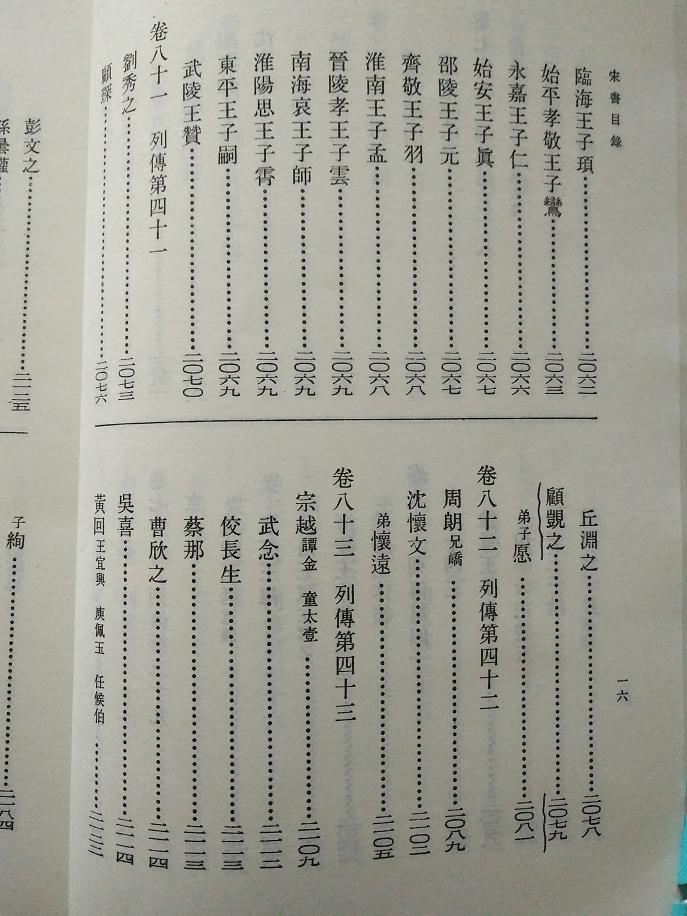 宋書目錄
臨海王子頊……二〇六二
始平孝敬王子鸞……二〇六三
永嘉王子仁……二〇六六
始安王子眞……二〇六七
邵陵王子元……二〇六七
齊敬王子羽……二〇六八
淮南王子孟……二〇六八
晉陵孝王子雲……二〇六九
南海哀王子師……二〇六九
淮陽思王子霄……二〇六九
東平王子嗣……二〇六九
武陵王贊……二〇七〇
卷八十一 列傳第四十一
劉秀之……二〇七三
顧琛……二〇七六
丘淵之……二〇七八
顧覬之……二〇七九
弟子愿……二〇八一
卷八十二 列傳第四十二
周朗 兄嶠……二〇八九
沈懷文……二一〇二
弟懷遠……二一〇五
卷八十三 列傳第四十三
宗越 譚金 童太壹……二一〇九
武念……二一一二
佼長生……二一一三
蔡那……二一一三
曹欣之……二一一四
吳喜……二一一四
黃回 王宜興 庾佩玉 任候伯……二一二二
一六
彭文之……二一二五
孫曇瓘
子絢……二一八四